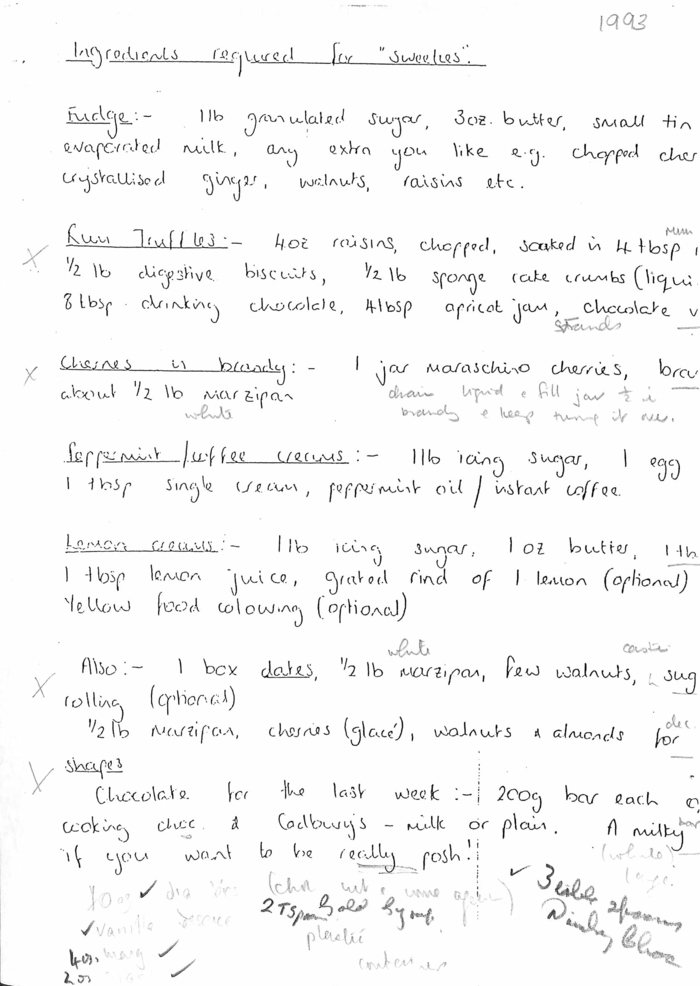 1993
Ingredients required for "sweeties".
Fudge:- 1lb granulated sugar, 3oz. butter, small tin
evaporated milk, any extra you like e.g. chopped cher
crystallised ginger, walnuts, raisins etc.
rum
X Rum Truffles:- 4oz raisins, chopped, soaked in 4 tbsp
1/2 lb digestive biscuits, 1/2 lb sponge cake crumbs (liqui
8 tbsp. drinking chocolate, 4tbsp apricot jam, chocolate v
strands
X Cherries in brandy:- 1 jar maraschino cherries, bra
about 1/2 lb marzipan drain liquid & fill jar 1/2 i
white brandy & keep turning it over.
Peppermint/coffee creams:- 1lb icing sugar, 1 egg
1 tbsp single cream, peppermint oil / instant coffee
Lemon creams:- 1lb icing sugar, 1 oz butter, 1 tb
1 tbsp lemon juice, grated rind of 1 lemon (optional)
Yellow food colouring (optional)
white caster
X Also:- 1 box dates, 1/2 lb marzipan, few walnuts, sug
rolling (optional)
dec
1/2 lb marzipan, cherries (glacé), walnuts & almonds for
X shapes
Chocolate for the last week:- 200g bar each
cooking choc & Cadbury's - milk or plain. A milky bar
if you want to be really posh! (white)
large
✓ 3
✓
2 Tspn Gold Syrup
✓ vanilla
plastic
4oz marg ✓
container
2oz ✓